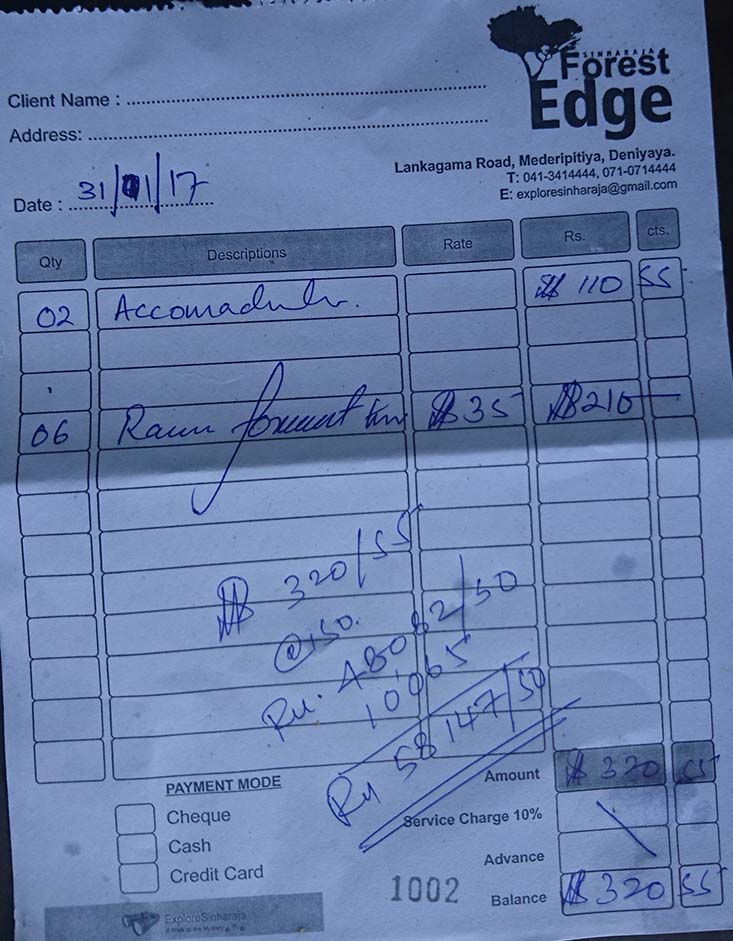 SINHARAJA
Forest
Edge
Client Name :
Address:
Lankagama Road, Mederipitiya, Deniyaya.
T: 041-3414444, 071-0714444
E: exploresinharaja@gmail.com
Date : 31/01/17
Qty Descriptions Rate Rs. cts.
02 $ 110 55
06 $ 35 $ 210 —
$ 320/55
@150.
48082/50
10065
58147/50
PAYMENT MODE
Cheque
Cash
Credit Card
Amount $ 320 55
Service Charge 10%
Advance
1002
Balance $ 320 55
ExploreSinharaja